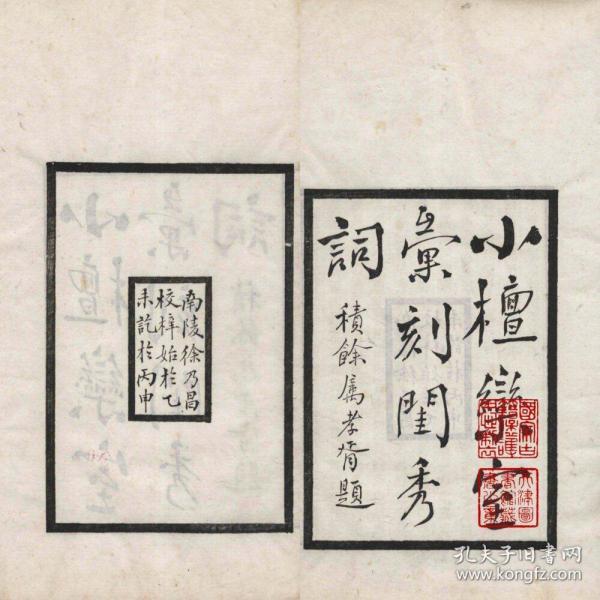 小檀欒室
彙刻閨秀
詞
積餘属孝胥題
南陵徐乃昌
校梓始於乙
未訖於丙申
孔夫子旧书网
www.kongfz.com